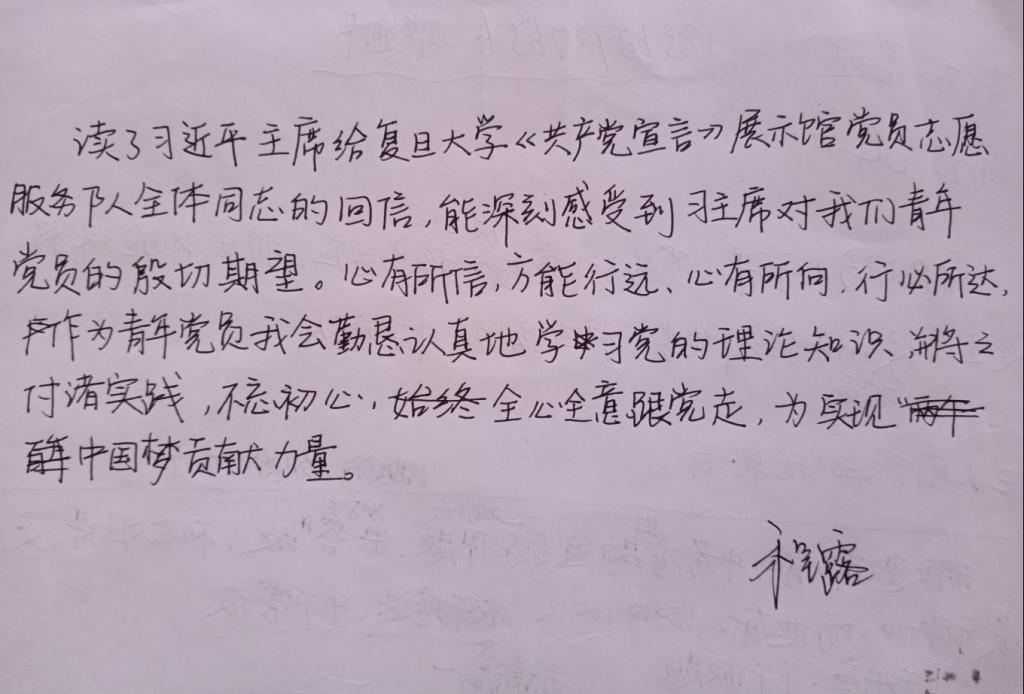 读了习近平主席给复旦大学《共产党宣言》展示馆党员志愿
服务队全体同志的回信，能深刻感受到习主席对我们青年
党员的殷切期望。心有所信，方能行远、心有所向，行必所达，
作为青年党员我会勤恳认真地学习党的理论知识、并将之
付诸实践，不忘初心，始终全心全意跟党走，为实现
中国梦贡献力量。
程露